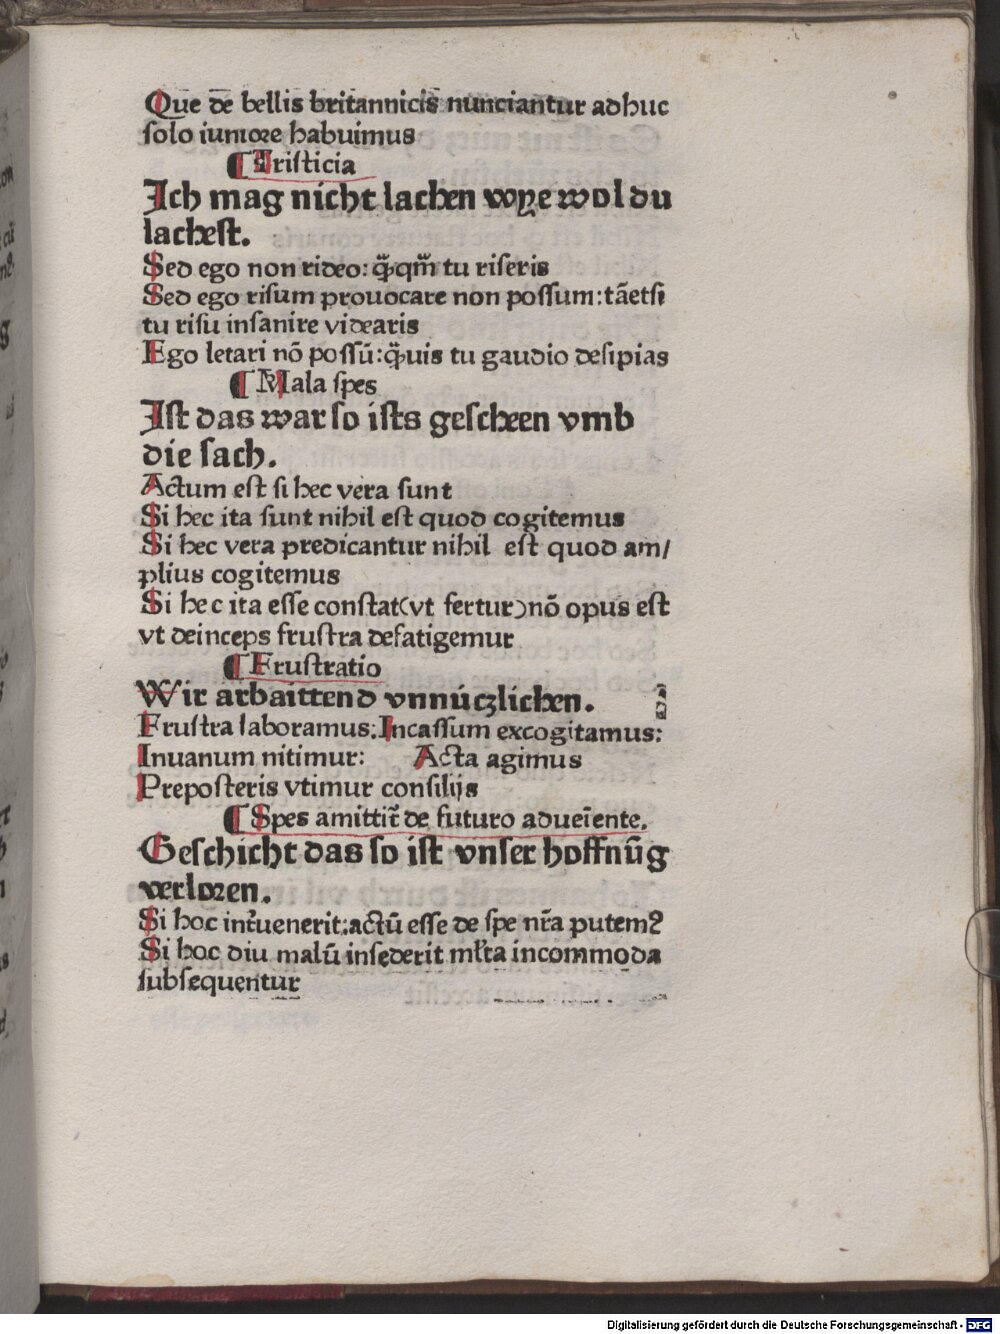 Que de bellis britannicis nunciantur adhuc
ſolo iumore habuimus
¶ Triſticia
Ich mag nicht lachen wye wol du
lacheſt.
Sed ego non rideo: q̄qm̄ tu riſeris
Sed ego riſum prouocare non poſſum: tāetſi
tu riſu inſanire videaris
Ego letari nō poſſū: q̄uis tu gaudio deſipias
¶ Mala ſpes
Iſt das war ſo iſts geſcheen vmb
die ſach.
Actum eſt ſi hec vera ſunt
Si hec ita ſunt nihil eſt quod cogitemus
Si hec vera predicantur nihil eſt quod am/
plius cogitemus
Si hec ita eſſe conſtat(vt fertur)nō opus eſt
vt deinceps fruſtra defatigemur
¶ Fruſtratio
Wir arbaittend vnnúczlichen.
Fruſtra laboramus: Incaſſum excogitamus:
Inuanum nitimur: Acta agimus
Prepoſteris vtimur conſilijs
¶ Spes amittit᷑ de futuro adueīente.
Geſchicht das ſo iſt vnſer hoffnūg
verloꝛen.
Si hoc int᷑uenerit: actū eſſe de ſpe nr̄a putem?
Si hoc diu malū inſederit mƚta incommoda
ſubſequentur
Digitalisierung gefördert durch die Deutsche Forschungsgemeinschaft - DFG